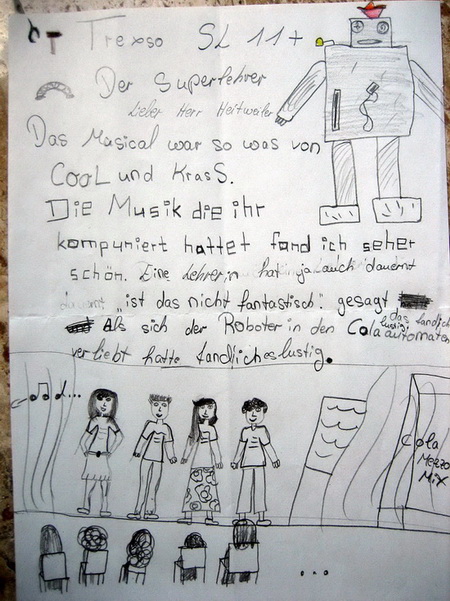 Trexso SL 11+
Der Superlehrer
Lieber Herr Heitweiler
Das Musical war so was von
CooL und KrasS.
Die Musik die ihr
kompuniert hattet fand ich seher
schön. Eine Lehrerin hat ja auch dauernt
„ist das nicht fantastisch" gesagt
Als sich der Roboter in den Colaautomaten
verliebt hatte fand ich es lustig.
Cola
Mezzo
Mix
...